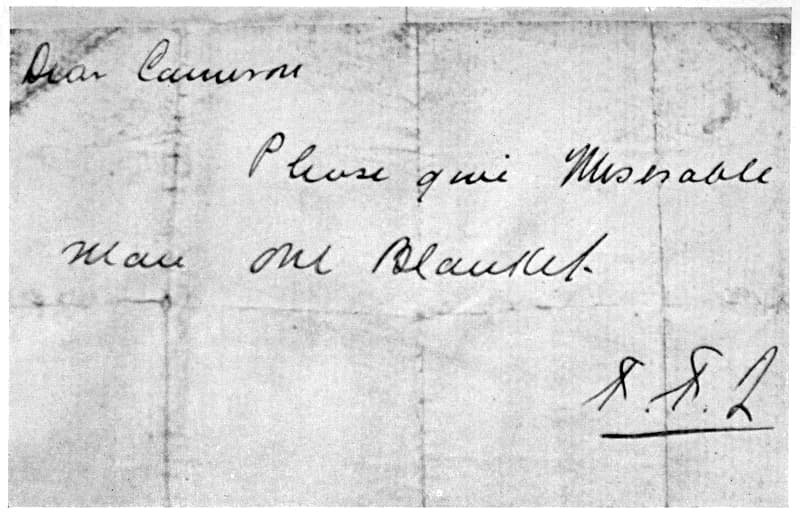 Dear Cameron
Please give Miserable
man one Blanket.
T.T.Q